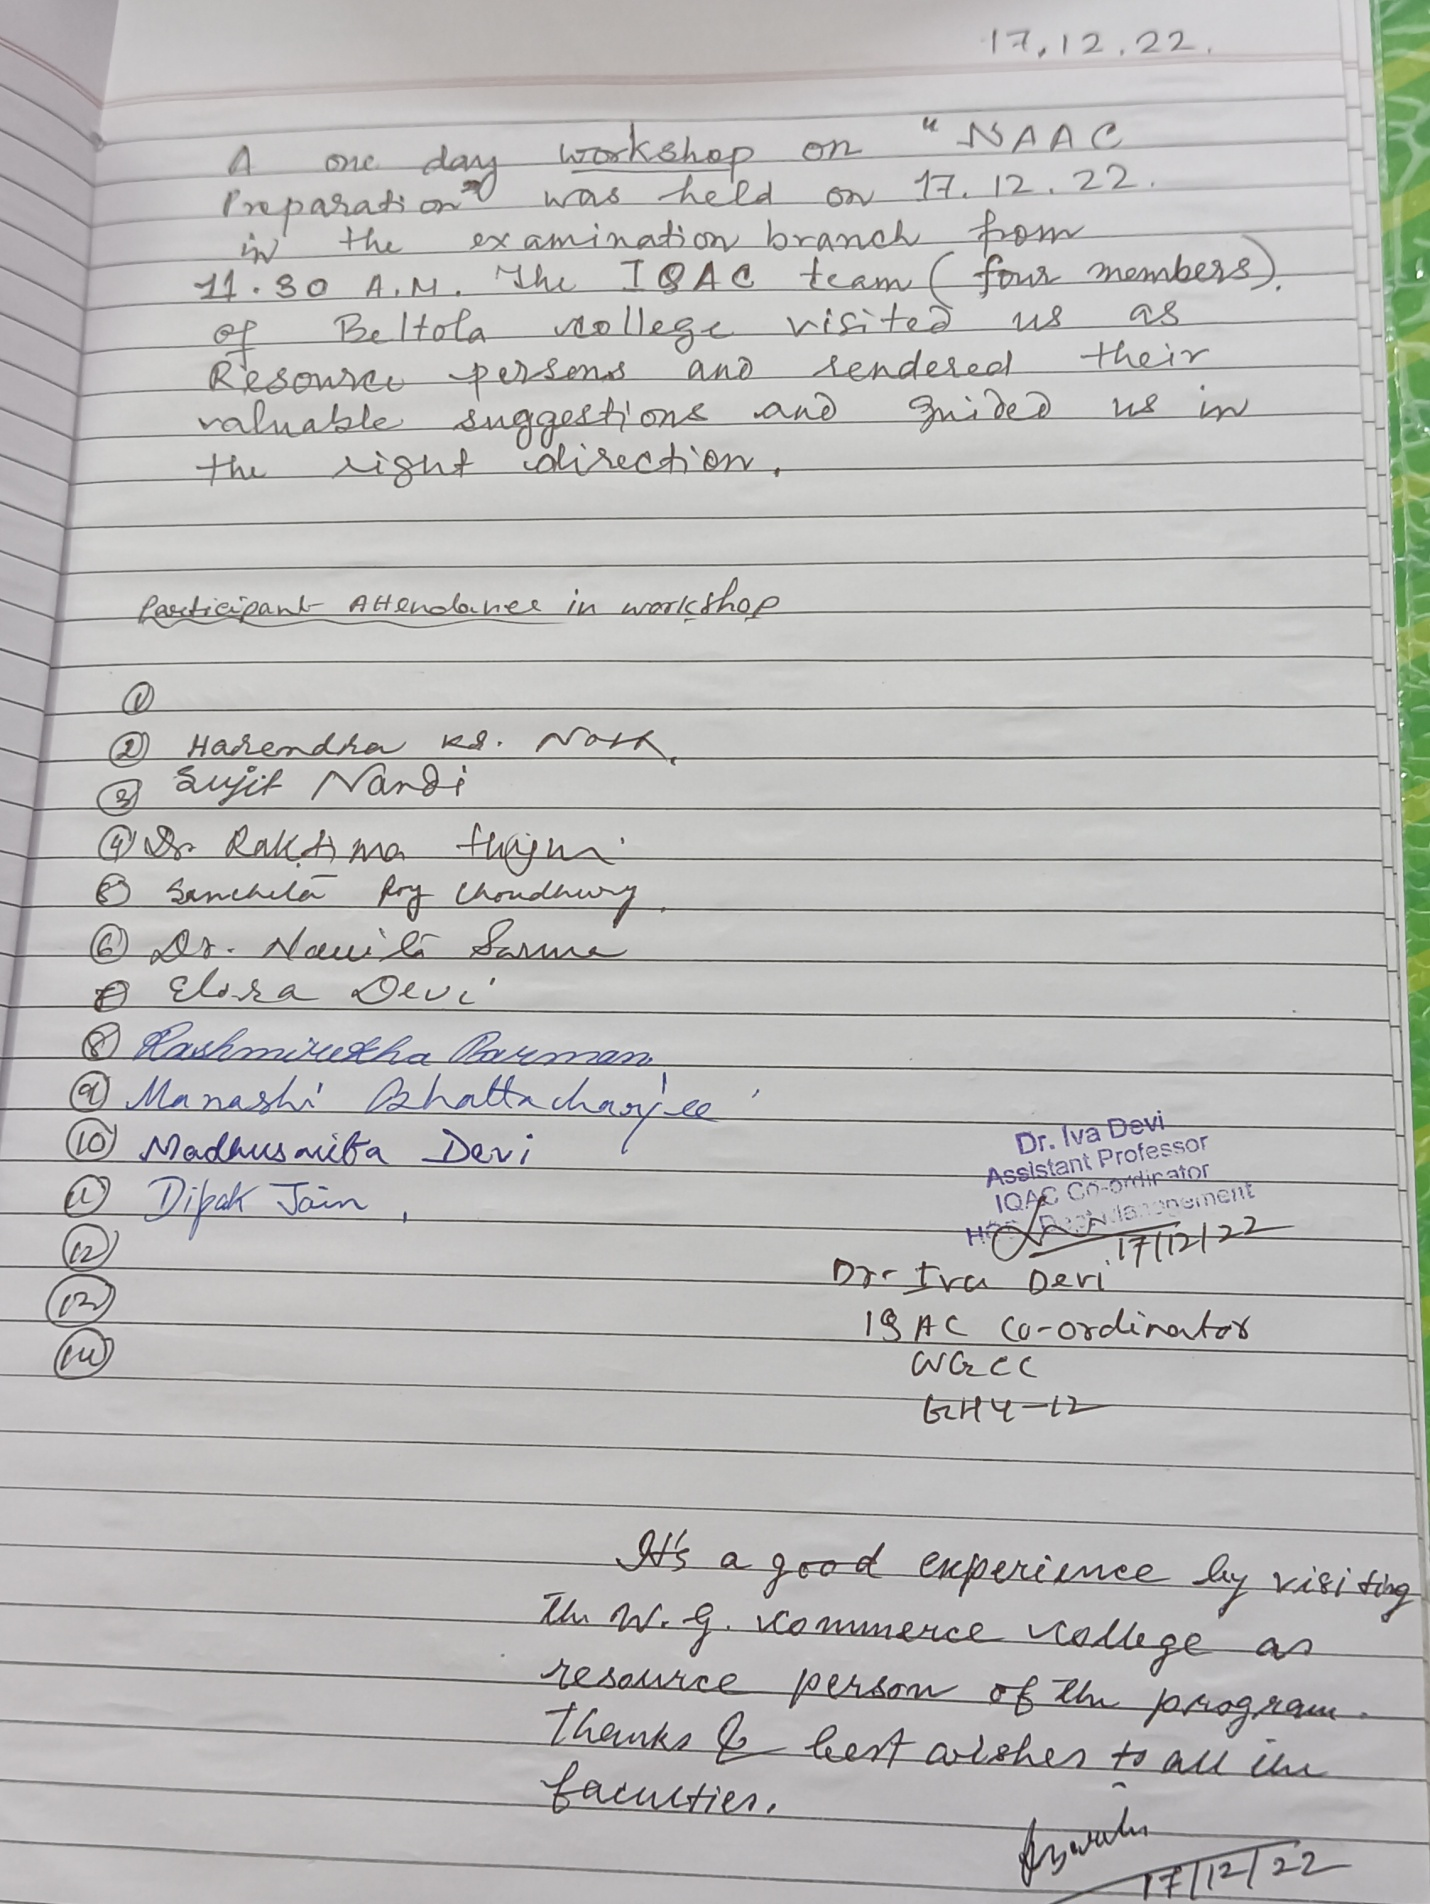 17.12.22.
A one day workshop on "NAAC
Preparation" was held on 17.12.22.
in the examination branch from
11.30 A.M. The IQAC team (four members).
of Beltola college visited us as
Resource persons and rendered their
valuable suggestions and guided us in
the right direction.
Participant Attendance in workshop
①
② Harendra Kr. Nath.
③ Sujit Nandi
④ Dr Raktima
⑤ Sanchita Roy Choudhury.
⑥ Dr. Sarma
⑦ Elora Devi
⑧ Rashmirekha Barman
⑨ Manashi Bhattacharjee
⑩ Madhusmita Devi
⑪ Dipak Jain,
⑫
⑬
⑭
Dr. Iva Devi
Assistant Professor
IQAC Co-ordinator
Management
17/12/22
Dr. Iva Devi
IQAC Co-ordinator
WGCC
GHY-12
It's a good experience by visiting
the W.G. Commerce College as
resource person of the program.
Thanks & best wishes to all the
faculties.
17/12/22